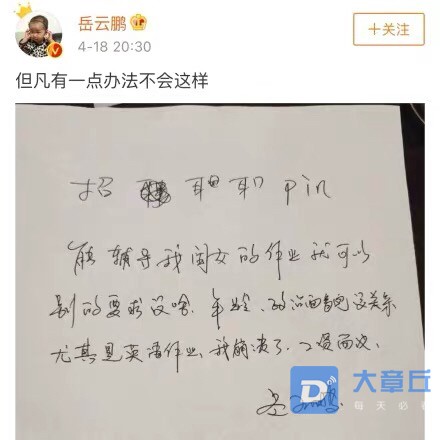 岳云鹏
4-18 20:30
十关注
但凡有一点办法不会这样
招 职 职 Pin
能辅导我闺女的作业就可以
别的要求没啥.年龄、政治面貌没关系
尤其是英语作业,我崩溃了.工资面议.
岳云鹏
大章丘
每天必看